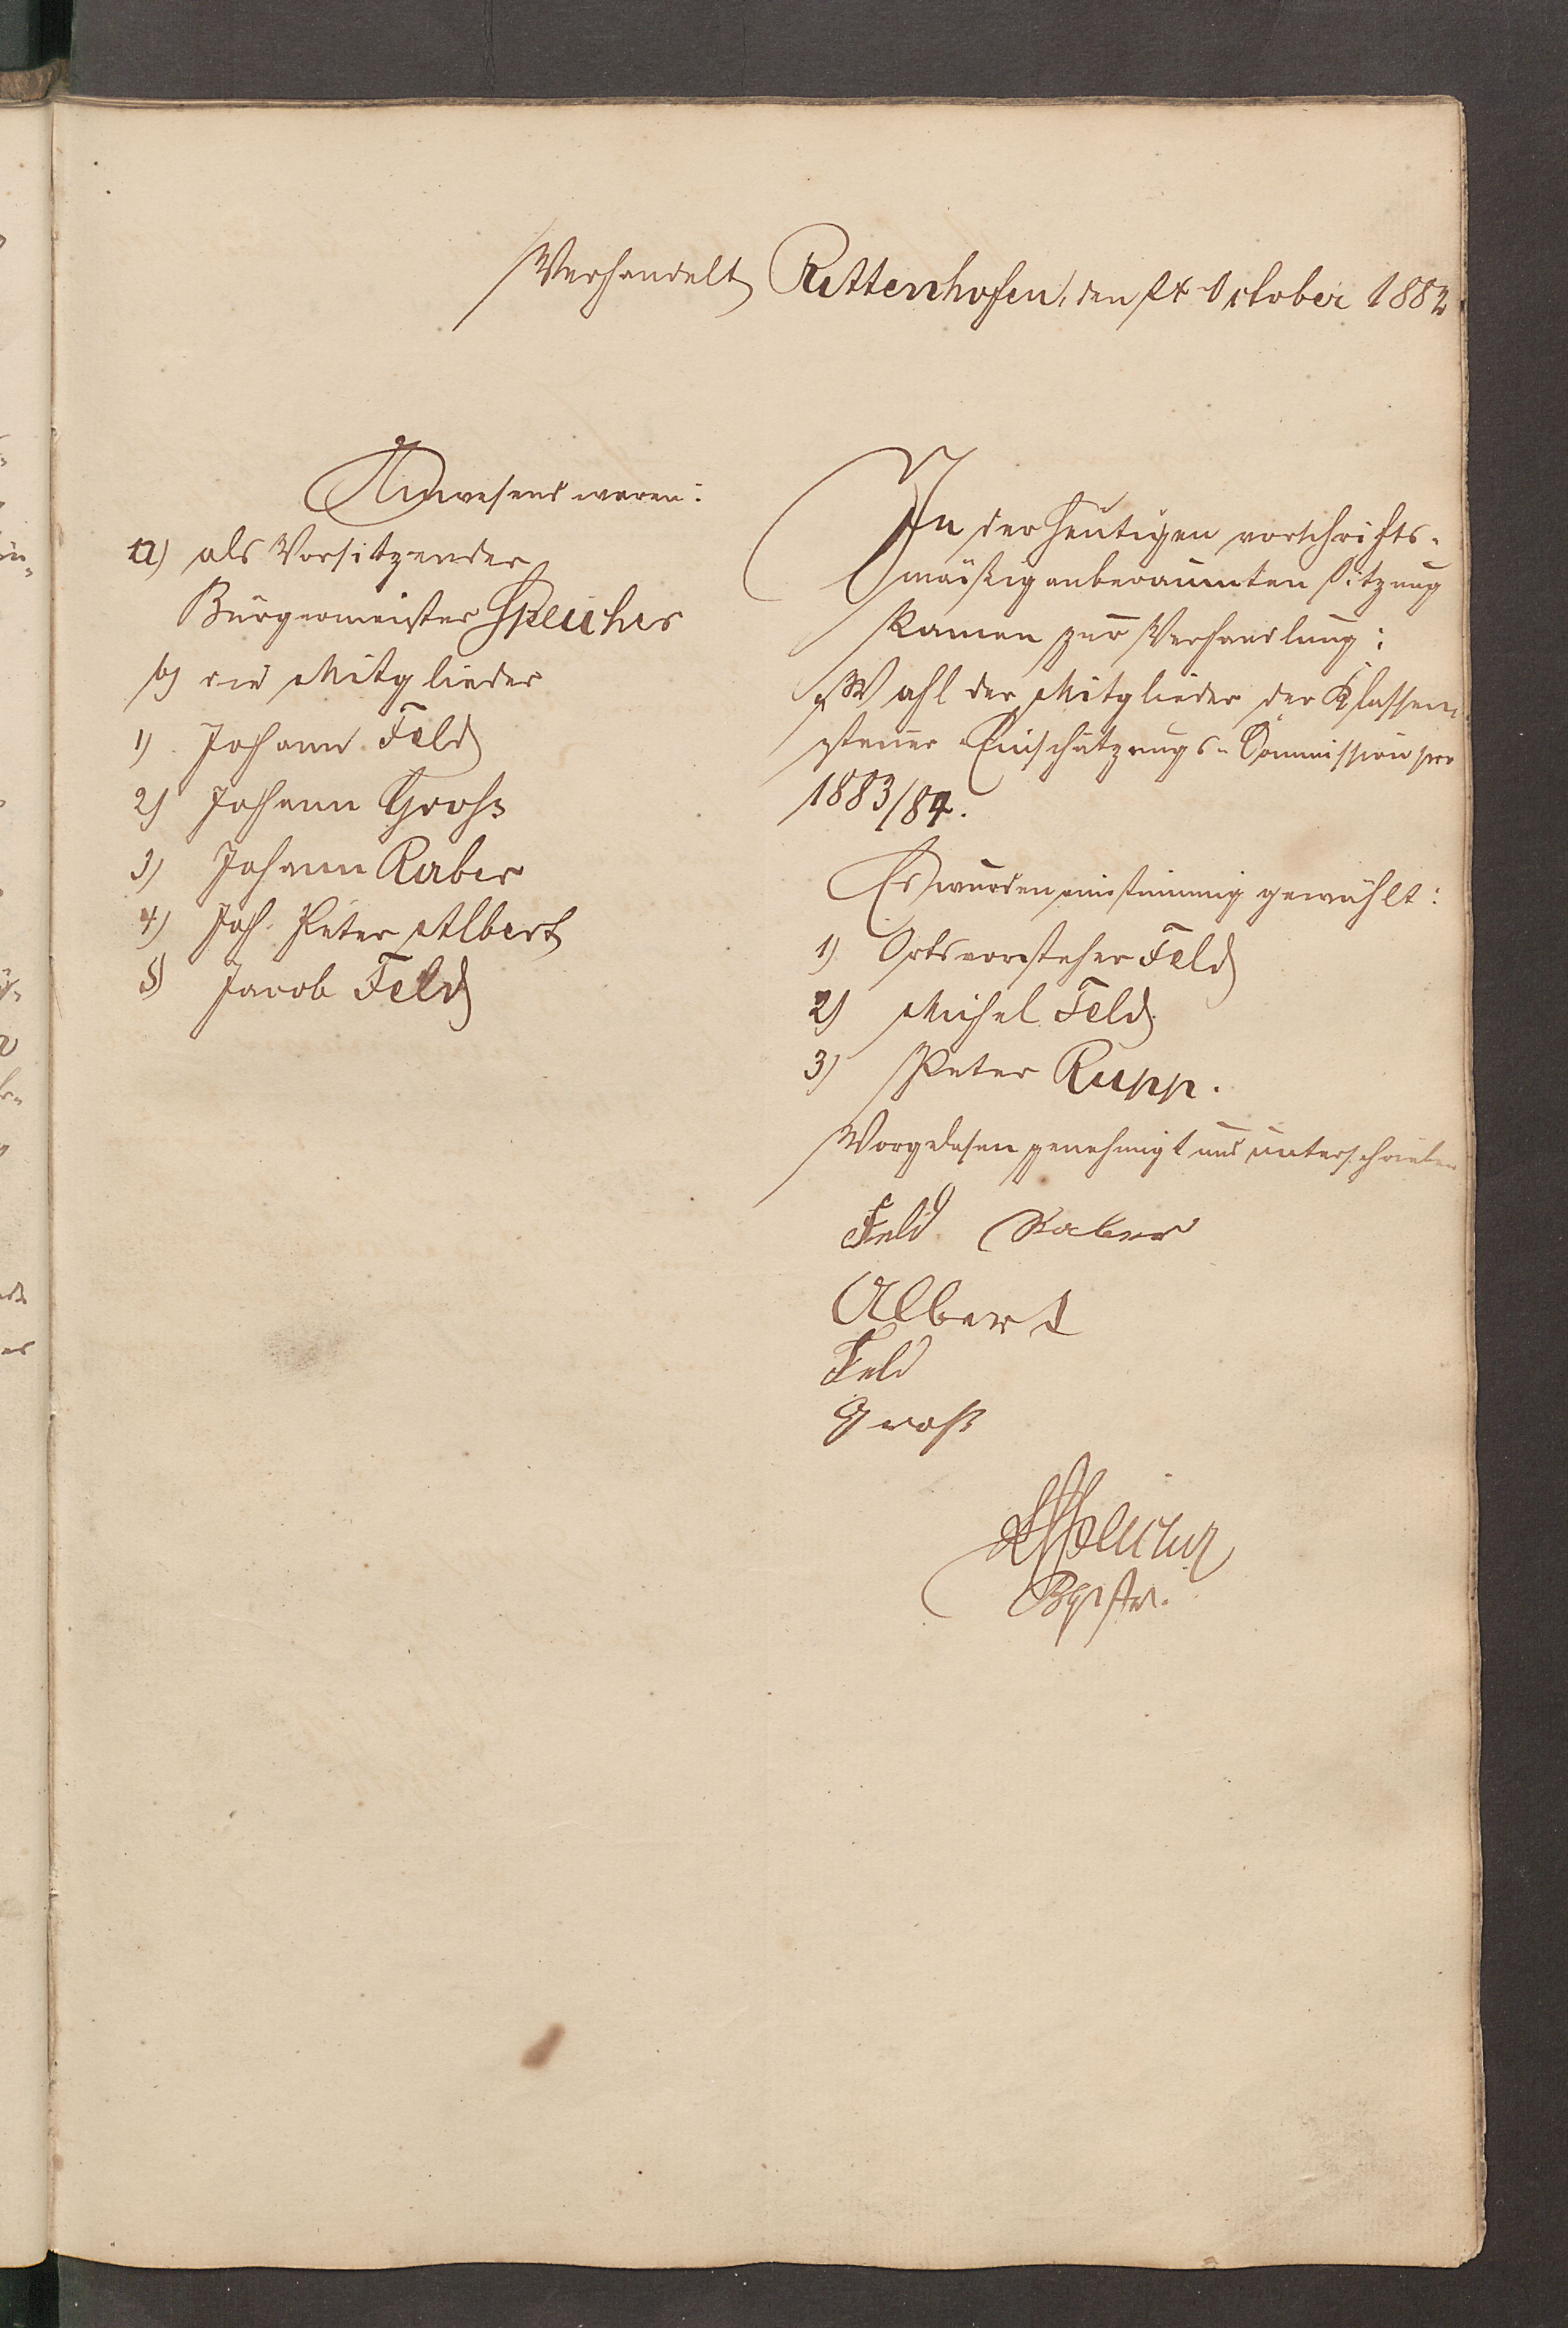 Verhandelt Rittenhofen, den 24 October 1882
Anwesend waren:
a) als Vorsitzender
Bürgermeister Speicher
b) die Mitglieder
1) Johann Feld
2) Johann Groß
3) Johann Raber
4) Joh. Peter Albert
5) Jacob Feld
In der heutigen vorschrifts-
mäßig anberaumten Sitzung
kamen zur Verhandlung:
Wahl der Mitglieder der Klassen-
steuer Einschätzungs-Commission pro
1883/84.
Es wurden einstimmig gewählt:
1) Ortsvorsteher Feld
2) Michel Feld
3) Peter Rupp.
Vorgelesen genehmigt und unterschrieben
Feld Raber
Albert
Feld
Groß
Speicher
Bgrstr.